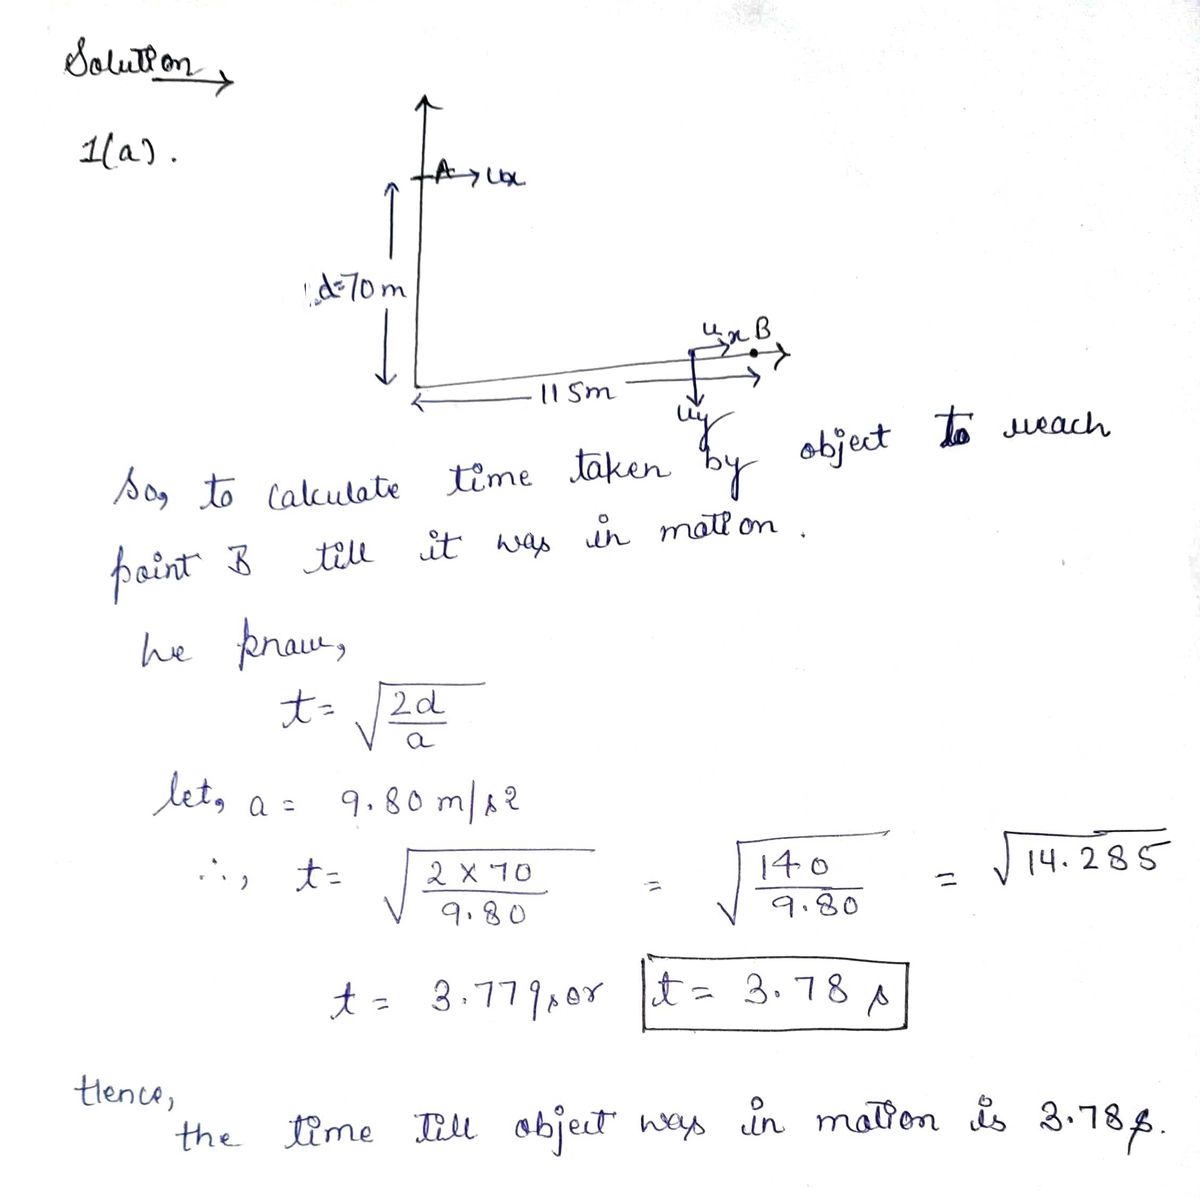 Solution
1(a).
A → ux
d=70m
ux B
115m
uy
So, to calculate time taken by object to reach
point B till it was in motion.
We know,
t= √(2d/a)
let, a = 9.80 m/s2
∴, t= √(2 x 70/9.80) = √(140/9.80) = √14.285
t = 3.779s or t = 3.78 s
Hence,
the time till object was in motion is 3.78s.